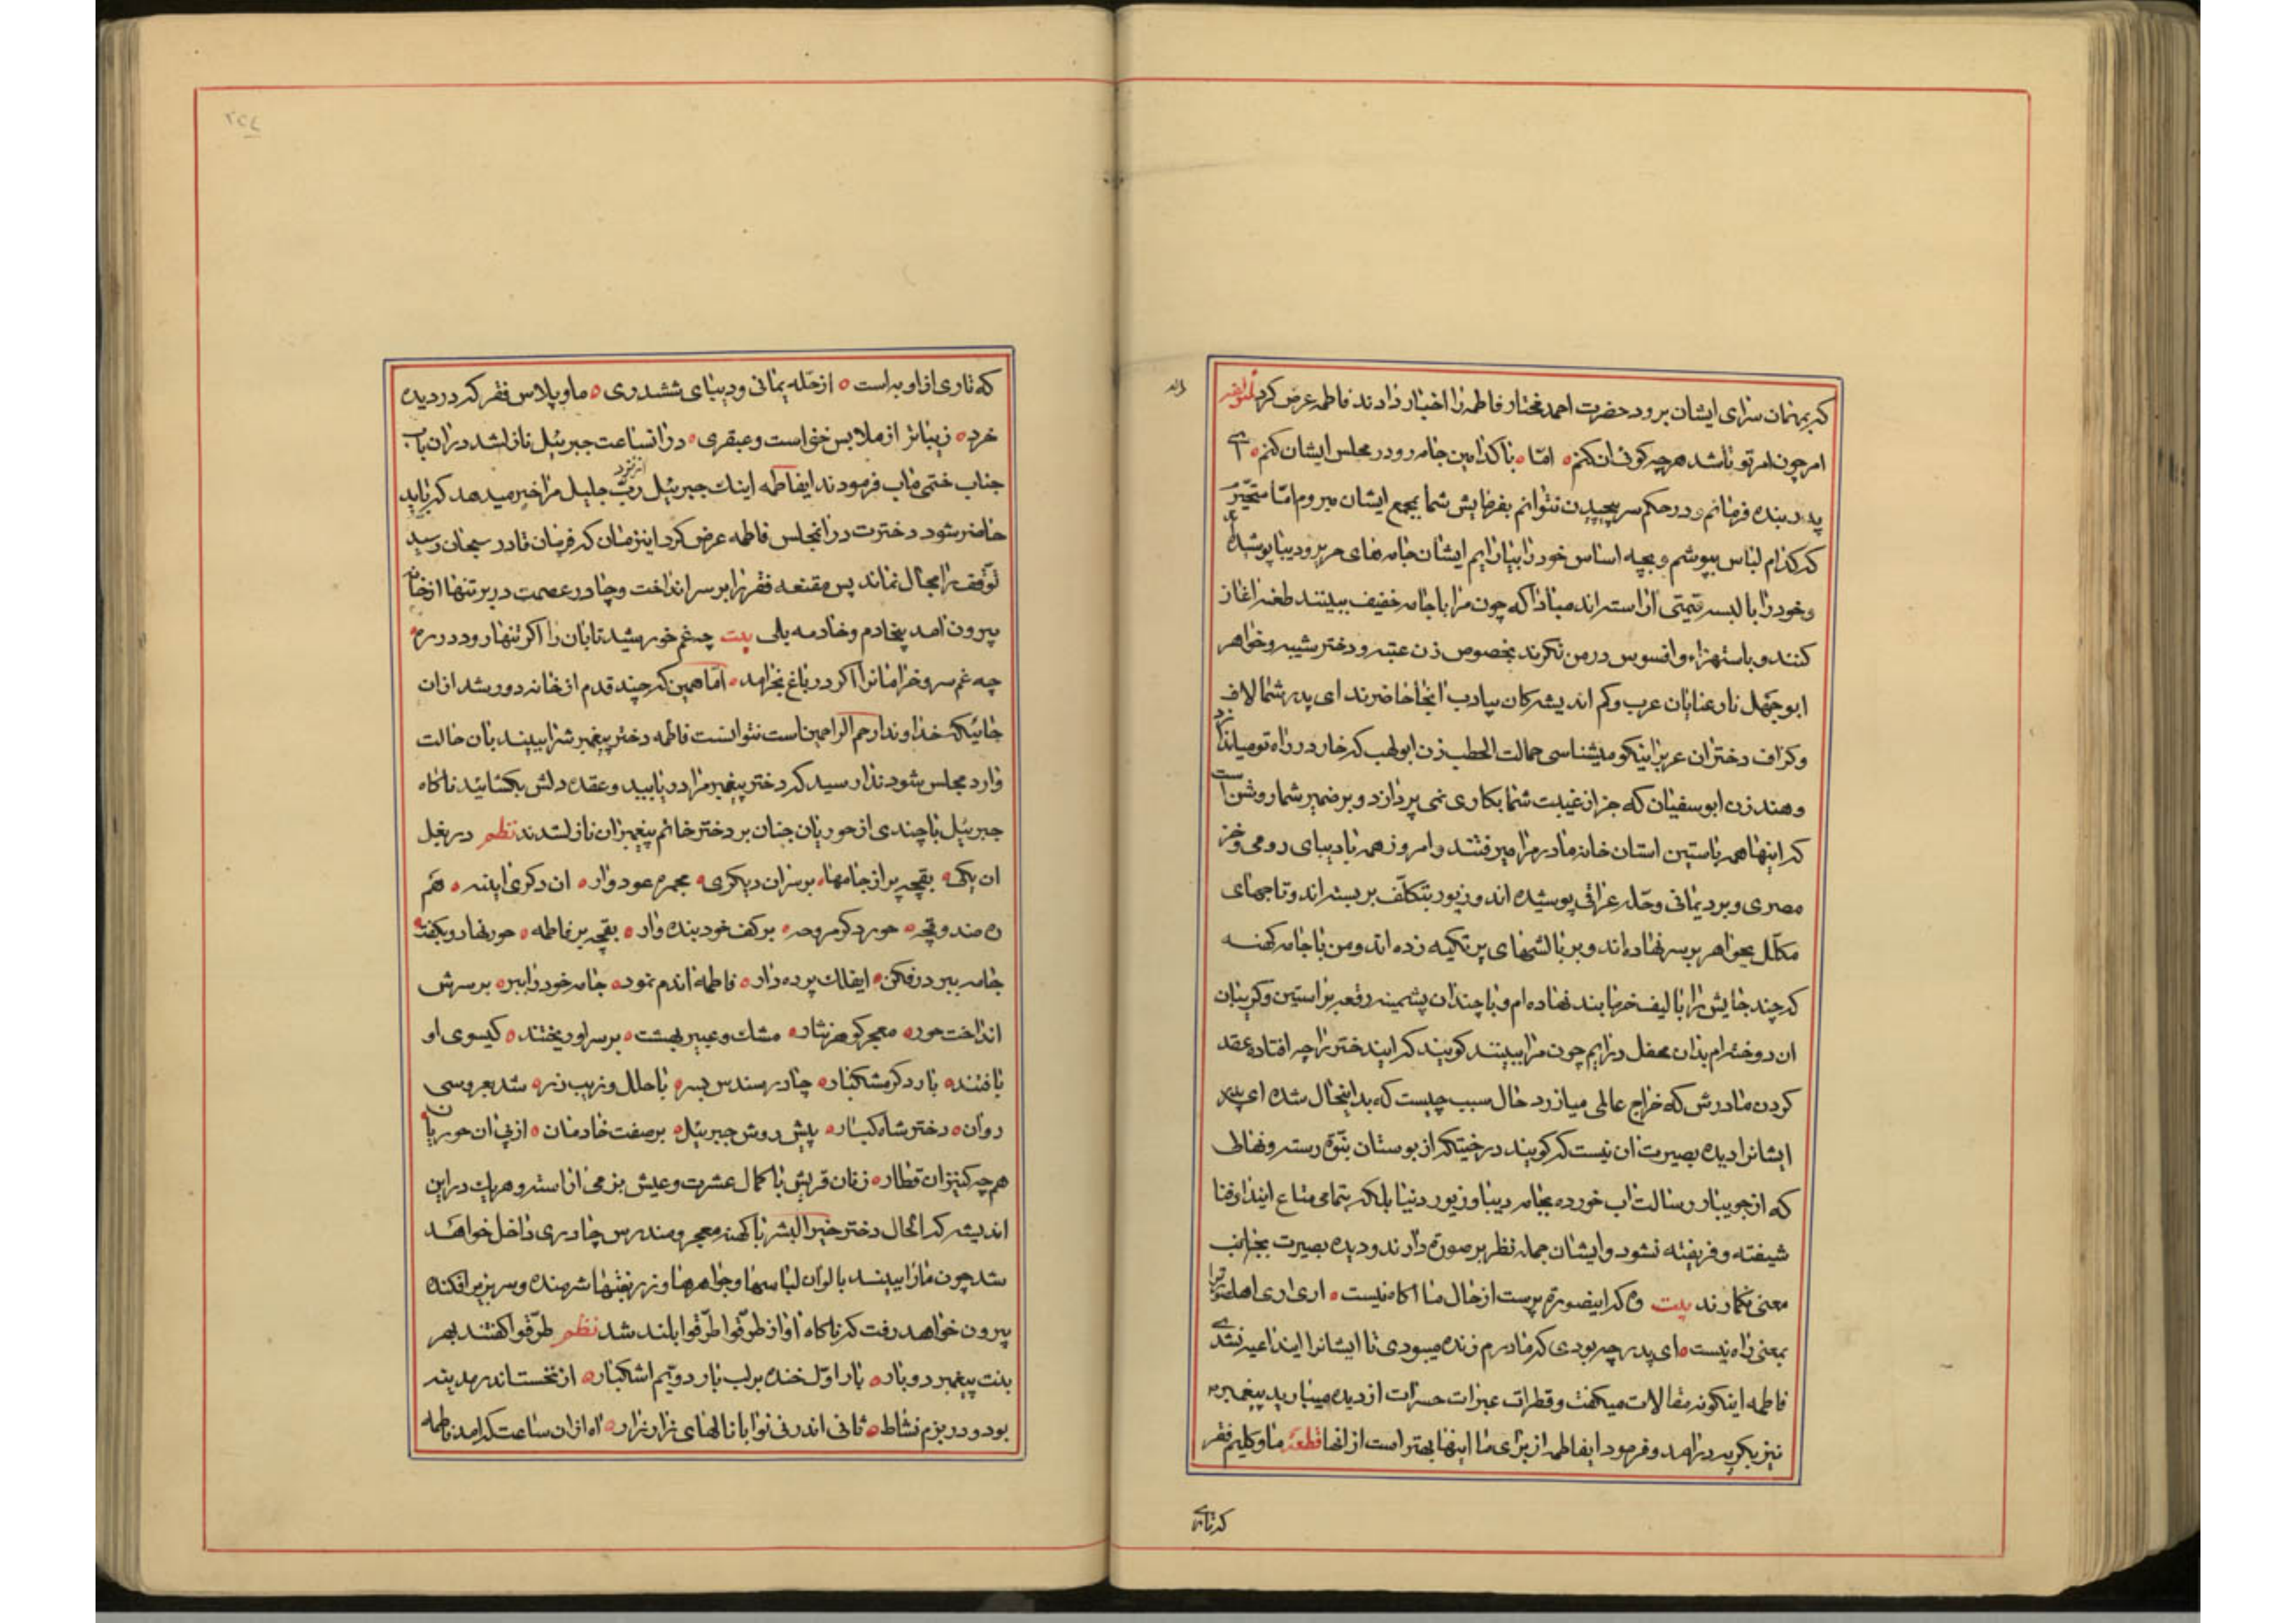 که بمهمان سرای ایشان برود حضرت احمد مختار فاطمه را اخبار دادند فاطمه عرض کرد لمؤلفه
امر چون امر تو باشد هرچه کوئی ان کنم امّا با کدامین جامه رو در مجلس ایشان کنم ای
پدر بنده فرمانم و در حکم سر پیچیدن نتوانم بفرمایش شما بمجمع ایشان میروم امّا متحیّرم
که کدام لباس بپوشم و بچه اساس خود را بیارایم ایشان جامه های حریر و دیبا پوشیده
و خود را با لبسه قیمتی اراسته اند مبادا که چون مرا با جامه خفیف ببینند طعنه اغاز
کنند و باستهزاء و افسوس در من نکرند بخصوص زن عتبه و دختر شیبه و خواهر
ابو جهل نارعنایان عرب و کم اندیشه کان بی ادب انجا حاضرند ای پدر شما لاف
و کزاف دختران عرب را نیکو میشناسی حمالت الحطب زن ابولهب که خار در راه تو میانداز
و هند زن ابوسفیان که جز از غیبت شما بکاری نمی پردازد و بر ضمیر شما روشن است
که اینها همه باستین استان خانه مادر مرا میرفتند و امروز همه با دیبای رومی و خز
مصری و برد یمانی و حلّه عراقی پوسیده اند و زیور بتکلّف بر بسته اند و تاجهای
مکلّل بجواهر بر سر نهاده اند و بر بالشهای پر تکیه زده اند و من با جامه کهنه
که چند جایش را با لیف خرما بند نهاده ام و با چندان پشمینه رقعه بر استین و کریبان
ان دوخته ام بدان محفل درایم چون مرا ببینند کویند که ایند ختر را چه افتاده عقد
کردن مادرش که خراج عالمی میارزد حال سبب چیست که بداینحال شده ای پدر
ایشانرا دیده بصیرت ان نیست که کویند درختیکه از بوستان بنّوة رسته و نهالی
که از جویبار رسالت اب خورده بجامه دیبا و زیور دنیا بلکه بتمامی متاع ایندارفنا
شیفته و فریفته نشود و ایشان جمله نظر بر صورة دارند و دیده بصیرت بجانب
معنی نکمارند بیت وه که اینصورة پرست از حال ما اکاه نیست اری اری اهل صورة را
بمعنی راه نیست ای پدر چه بودی که مادرم زنده میبودی تا ایشانرا ایندا عیه نشدی
فاطمه اینکونه مقالات میکفت و قطرات عبرات حسرات از دیده میبارید پیغمبر
نیز بکریه درامد و فرمود ایفاطمه از برای ما اینها بهتر است از انها قطعه ما و کلیم فقر
که تاری
که تاری از او به است از حله یمانی و دیبای ششدری ما و پلاس فقر که در دیده
خرد زیباتر از ملابس خز است و عبقری در انساعت جبرئیل نازلشد دران باب
جناب ختمی ماب فرمودند ایفاطمه اینک جبرئیل از نزد ربّ جلیل مرا خبر میدهد که باید
حاضر شود دخترت در انمجلس فاطمه عرض کرد اینزمان که فرمان قادر سبحان رسید
توّقف را مجال نماند پس مقنعه فقر را بر سر انداخت و چادر عصمت در بر تنها از خانه
بیرون امد بیخادم و خادمه بلی بیت چه غم خورشید تابان را اکر تنها رود در ره
چه غم سرو خرامانرا اکر در باغ بخرامد امّا همین که چند قدم از خانه دور شد ازان
جائیکه خداوند ارحم الراحمین است نتوانست فاطمه دختر پیغمبرش را ببیند بان حالت
وارد مجلس شود ندا رسید که دختر پیغمبر مرا دریابید و عقده دلش بکشائید ناکاه
جبرئیل با چندی از حوریان جنان بر دختر خاتم پیغمبران نازلشدند نظم در بغل
ان یکی بقچه پر از جامها بر سر ان دیکری مجمره عود وار ان دکری اینه هم
ره صندوقچه حور دکر مروحه بر کف خود بنده وار بقچه بر فاطمه حور نهاد و بکفت
جامه ببر درفکن ایفلک پرده دار فاطمه اندم نمود جامه خود را ببر بر سرش
انداخت حور معجر کوهر نثار مشک و عبیر بهشت بر سر او ریختند کیسوی او
بافتند بار دکر مشکبار چادر سندس بسر با حلل و زیب زر شد بعروسی
روان دختر شاه کبار پیش روش جبرئیل بر صفت خادمان از پی ان حوریان
همچه کنیزان قطار زنان قریش با کمال عشرت و عیش بزمی اراسته و هریک در این
اندیشه که الحال دختر خیر البشر با کهنه معجر و مندرس چادری داخل خواهد
شد چون ما را ببیند با لوان لباسها و جواهرها و زر بفتها شرمنده و سر بزیر افکنده
بیرون خواهد رفت که ناکاه اواز طرّقوا طرّقوا بلند شد نظم طرّقوا کفتند بهر
بنت پیغمبر دو بار بار اوّل خنده بر لب بار دویّم اشکبار از نخست اندر مدینه
بود و در بزم نشاط ثانی اندر نی نوا با نالهای زار زار اه ازان ساعت که امد فاطمه